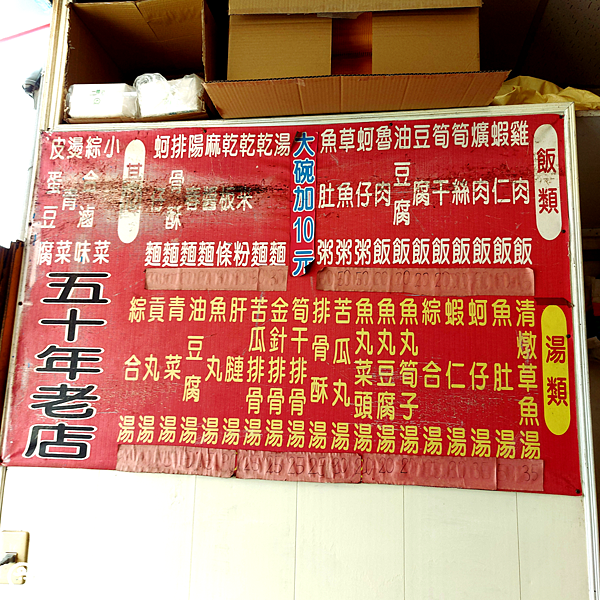 飯類
雞肉飯
蝦仁飯
爌肉飯
筍絲飯
筍干飯
豆腐飯
油豆腐飯
魯肉飯
蚵仔粥
草魚粥
魚肚粥
大碗加10元
湯麵
乾麵
乾米粉
乾粄條
麻醬麵
陽春麵
排骨酥麵
蚵仔麵
其
小菜
綜合滷味
燙青菜
皮蛋豆腐
湯類
清燉草魚湯
魚肚湯
蚵仔湯
蝦仁湯
綜合湯
魚丸筍子湯
魚丸豆腐湯
魚丸菜頭湯
苦瓜丸湯
排骨酥湯
筍干排骨湯
金針排骨湯
苦瓜排骨湯
肝湯
魚丸湯
油豆腐湯
青菜湯
貢丸湯
綜合湯
五十年老店
35